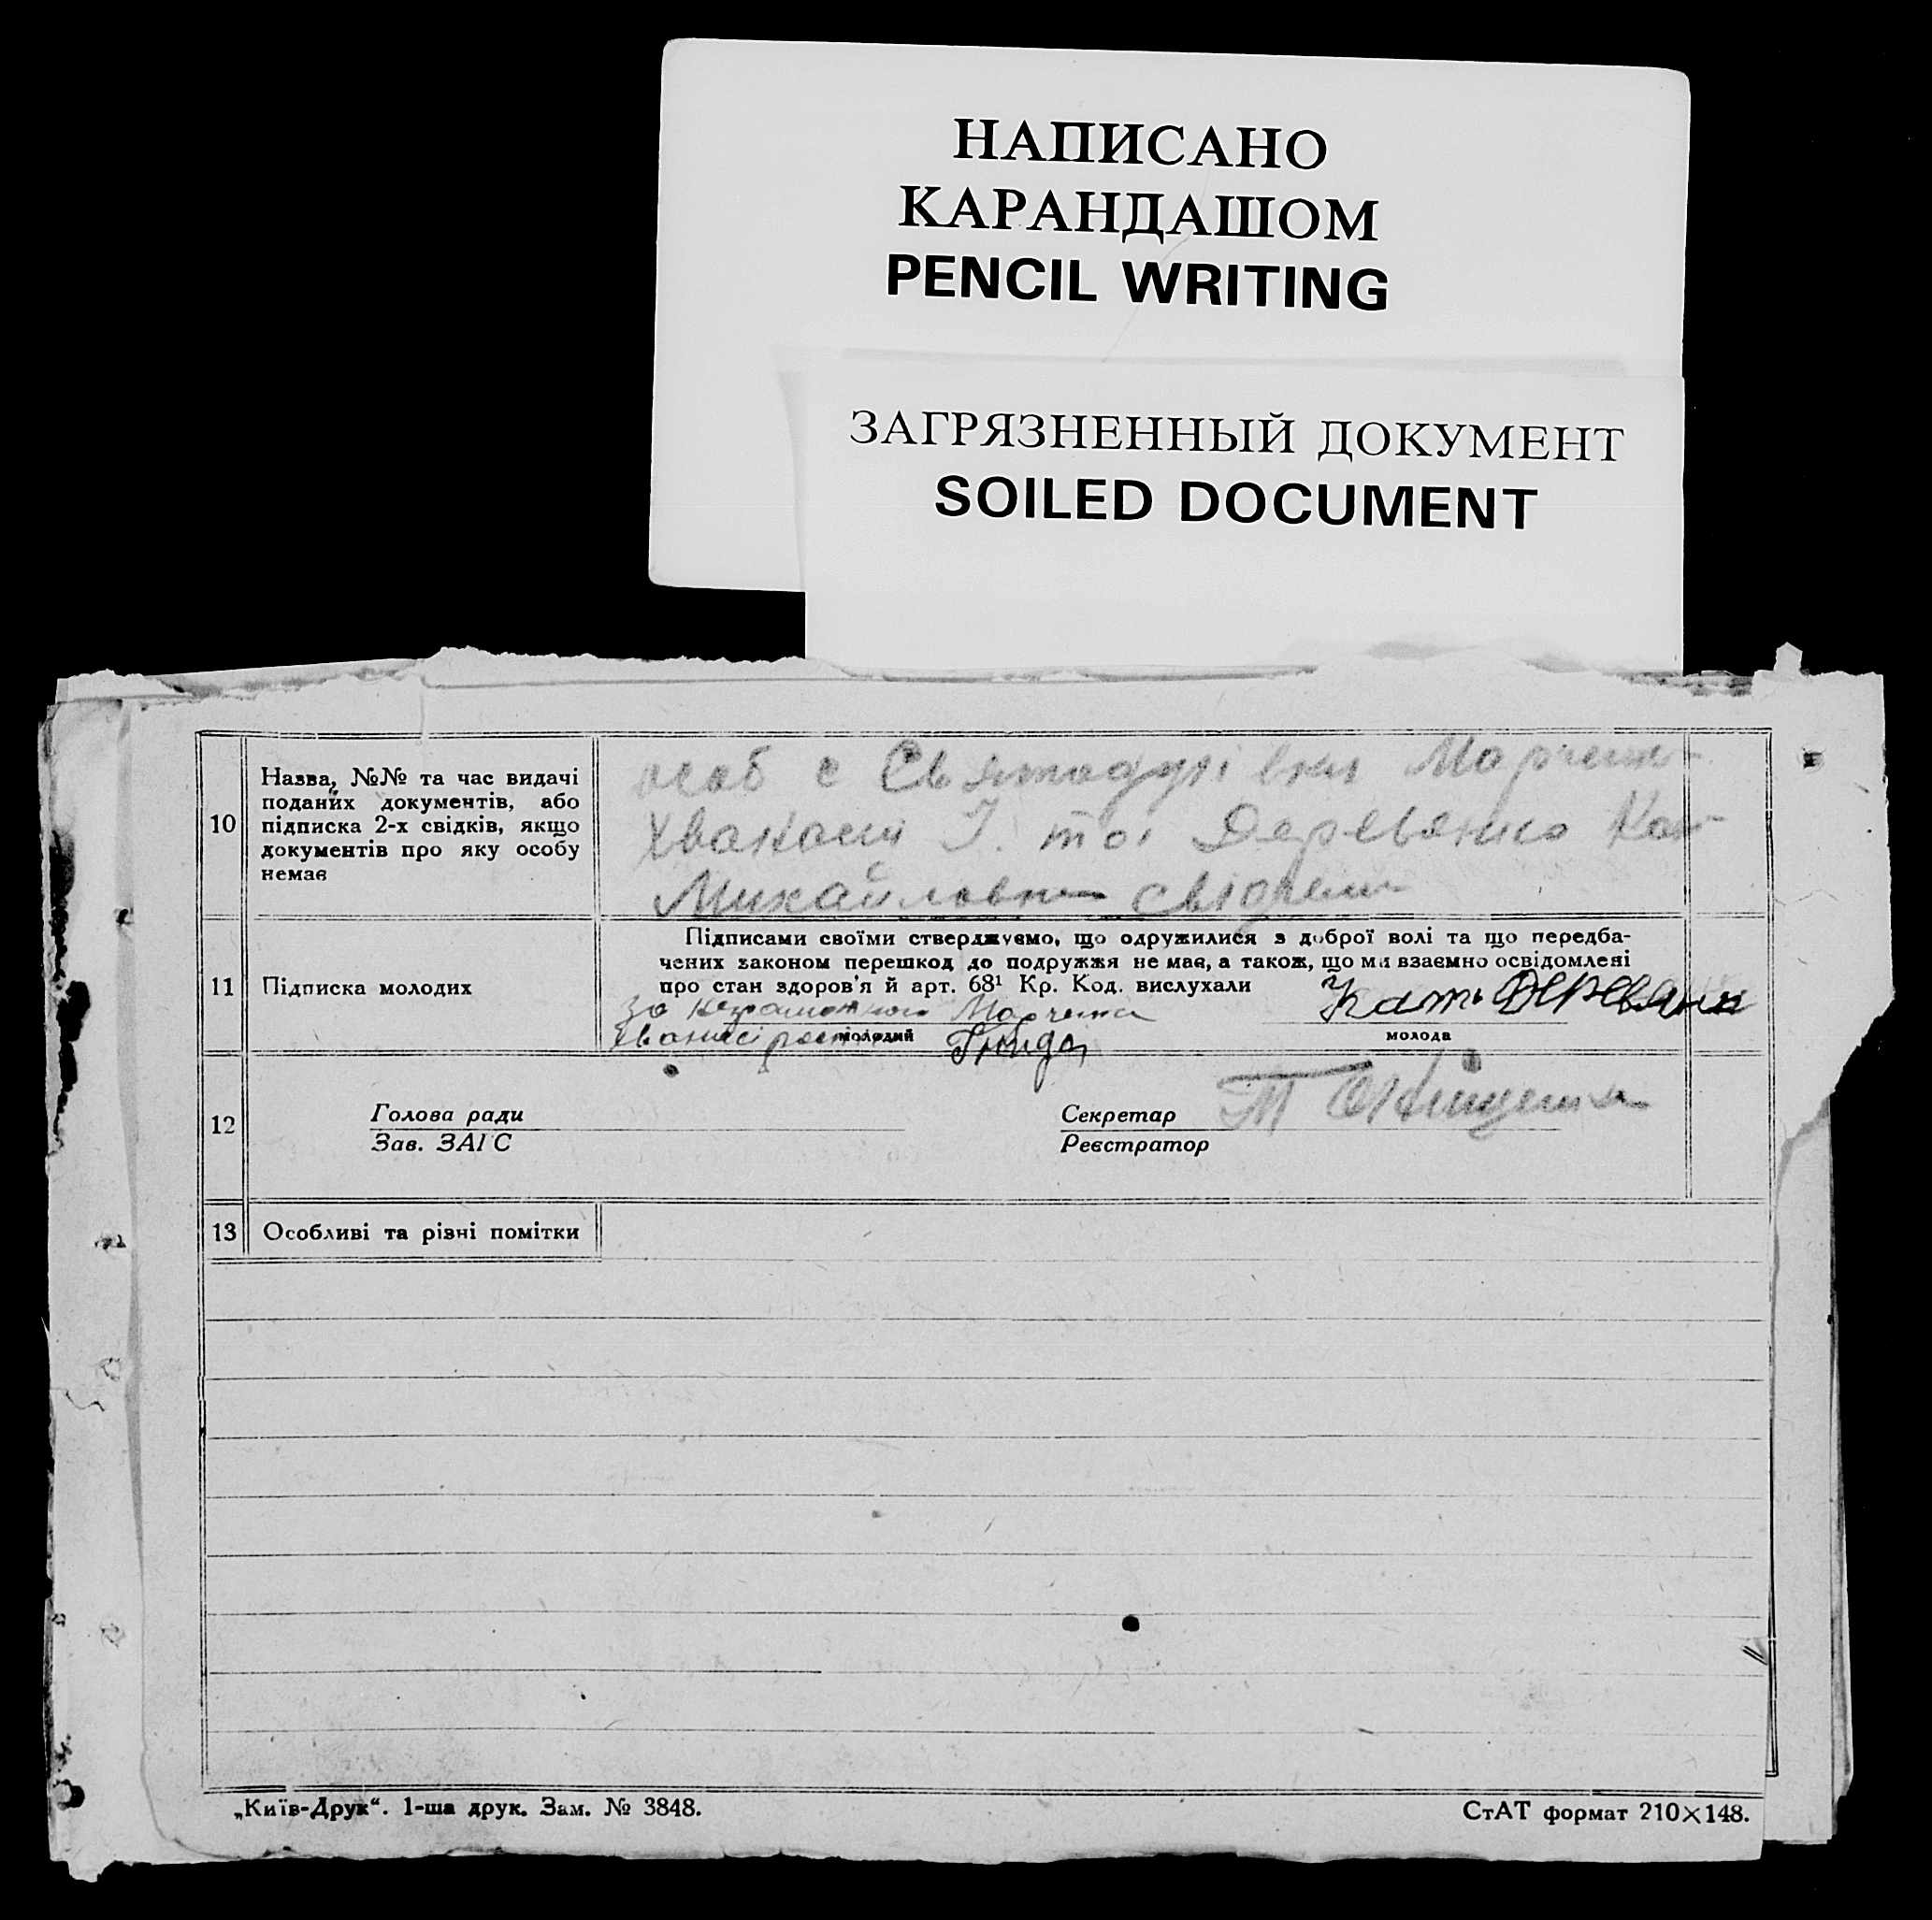 НАПИСАНО
КАРАНДАШОМ
PENCIL WRITING
ЗАГРЯЗНЕННЫЙ ДОКУМЕНТ
SOILED DOCUMENT
10
Назва, №№ та час видачі
поданих документів, або
підписка 2-х свідків, якщо
документів про яку особу
немає
особ с Марченк
І. та Деревянко Кат
Михайловна
11
Підписка молодих
Підписами своїми стверджуємо, що одружилися з доброї волі та що передба-
чених законом перешкод до подружжя не має, а також, що ми взаємно освідомлені
про стан здоров'я й арт. 68¹ Кр. Код. вислухали
за неграмотного Марченка
Кать Деревянк
молодий
молода
12
Голова ради
Зав. ЗАГС
Секретар
Реєстратор
13
Особливі та різні помітки
„Київ-Друк“. 1-ша друк. Зам. № 3848.
СтАТ формат 210×148.